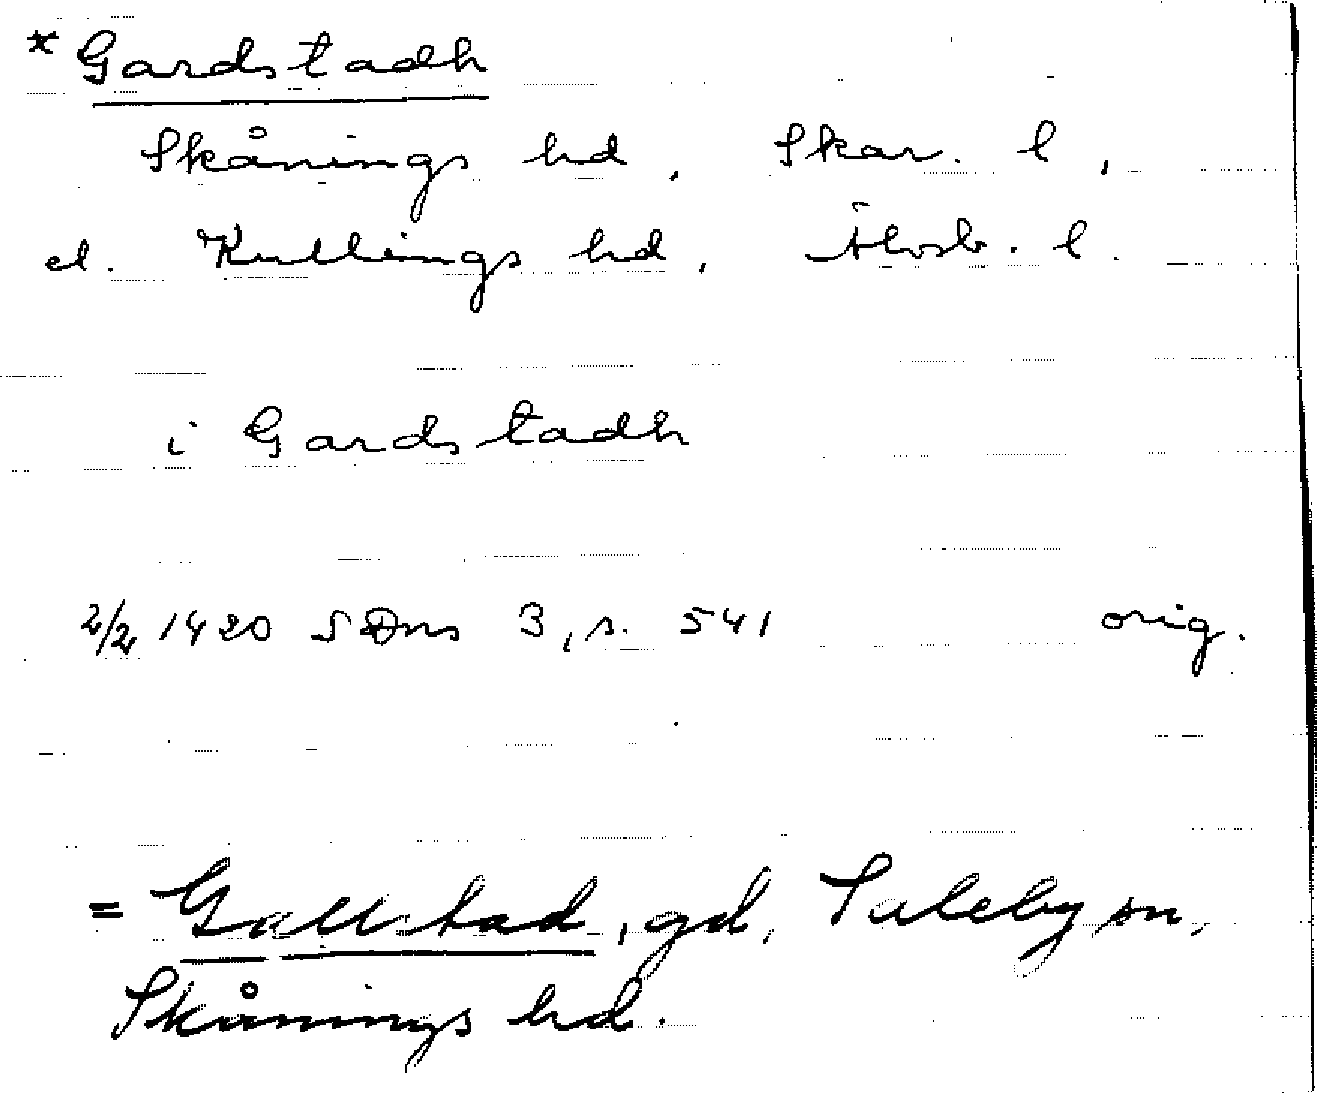 * Gardstadh
Skånings hd, Skar. l,
el. Kullings hd, Älvsb. l.
i Gardstadh
2/2 1420 SDns 3, s. 541 orig.
= Gallstad, gd, Saleby sn,
Skånings hd.